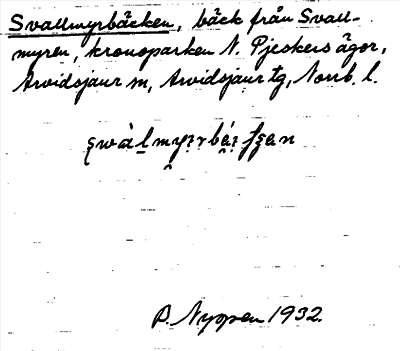 Svallmyrbäcken, bäck från Svall-
myren, kronoparken N. Pjeskers ägor,
Arvidsjaur sn, Arvidsjaur tg, Norrb. l.
P. Nyman 1932.